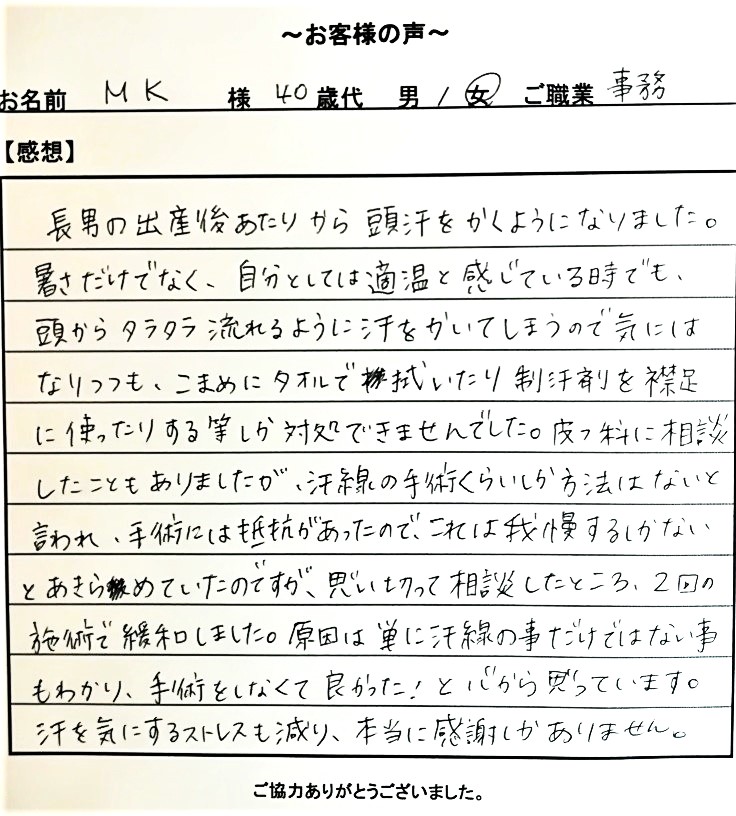 ～お客様の声～
お名前 MK 様 40歳代 男 / 女 ご職業 事務
【感想】
長男の出産後あたりから頭汗をかくようになりました。
暑さだけでなく、自分としては適温と感じている時でも、
頭からタラタラ流れるように汗をかいてしまうので気には
なりつつも、こまめにタオルで拭いたり制汗剤を襟足
に使ったりする等しか対処できませんでした。皮フ科に相談
したこともありましたが、汗線の手術くらいしか方法はないと
言われ、手術には抵抗があったので、これは我慢するしかない
とあきらめていたのですが、思い切って相談したところ、2回の
施術で緩和しました。原因は単に汗線の事だけではない事
もわかり、手術をしなくて良かった！と心から思っています。
汗を気にするストレスも減り、本当に感謝しかありません。
ご協力ありがとうございました。